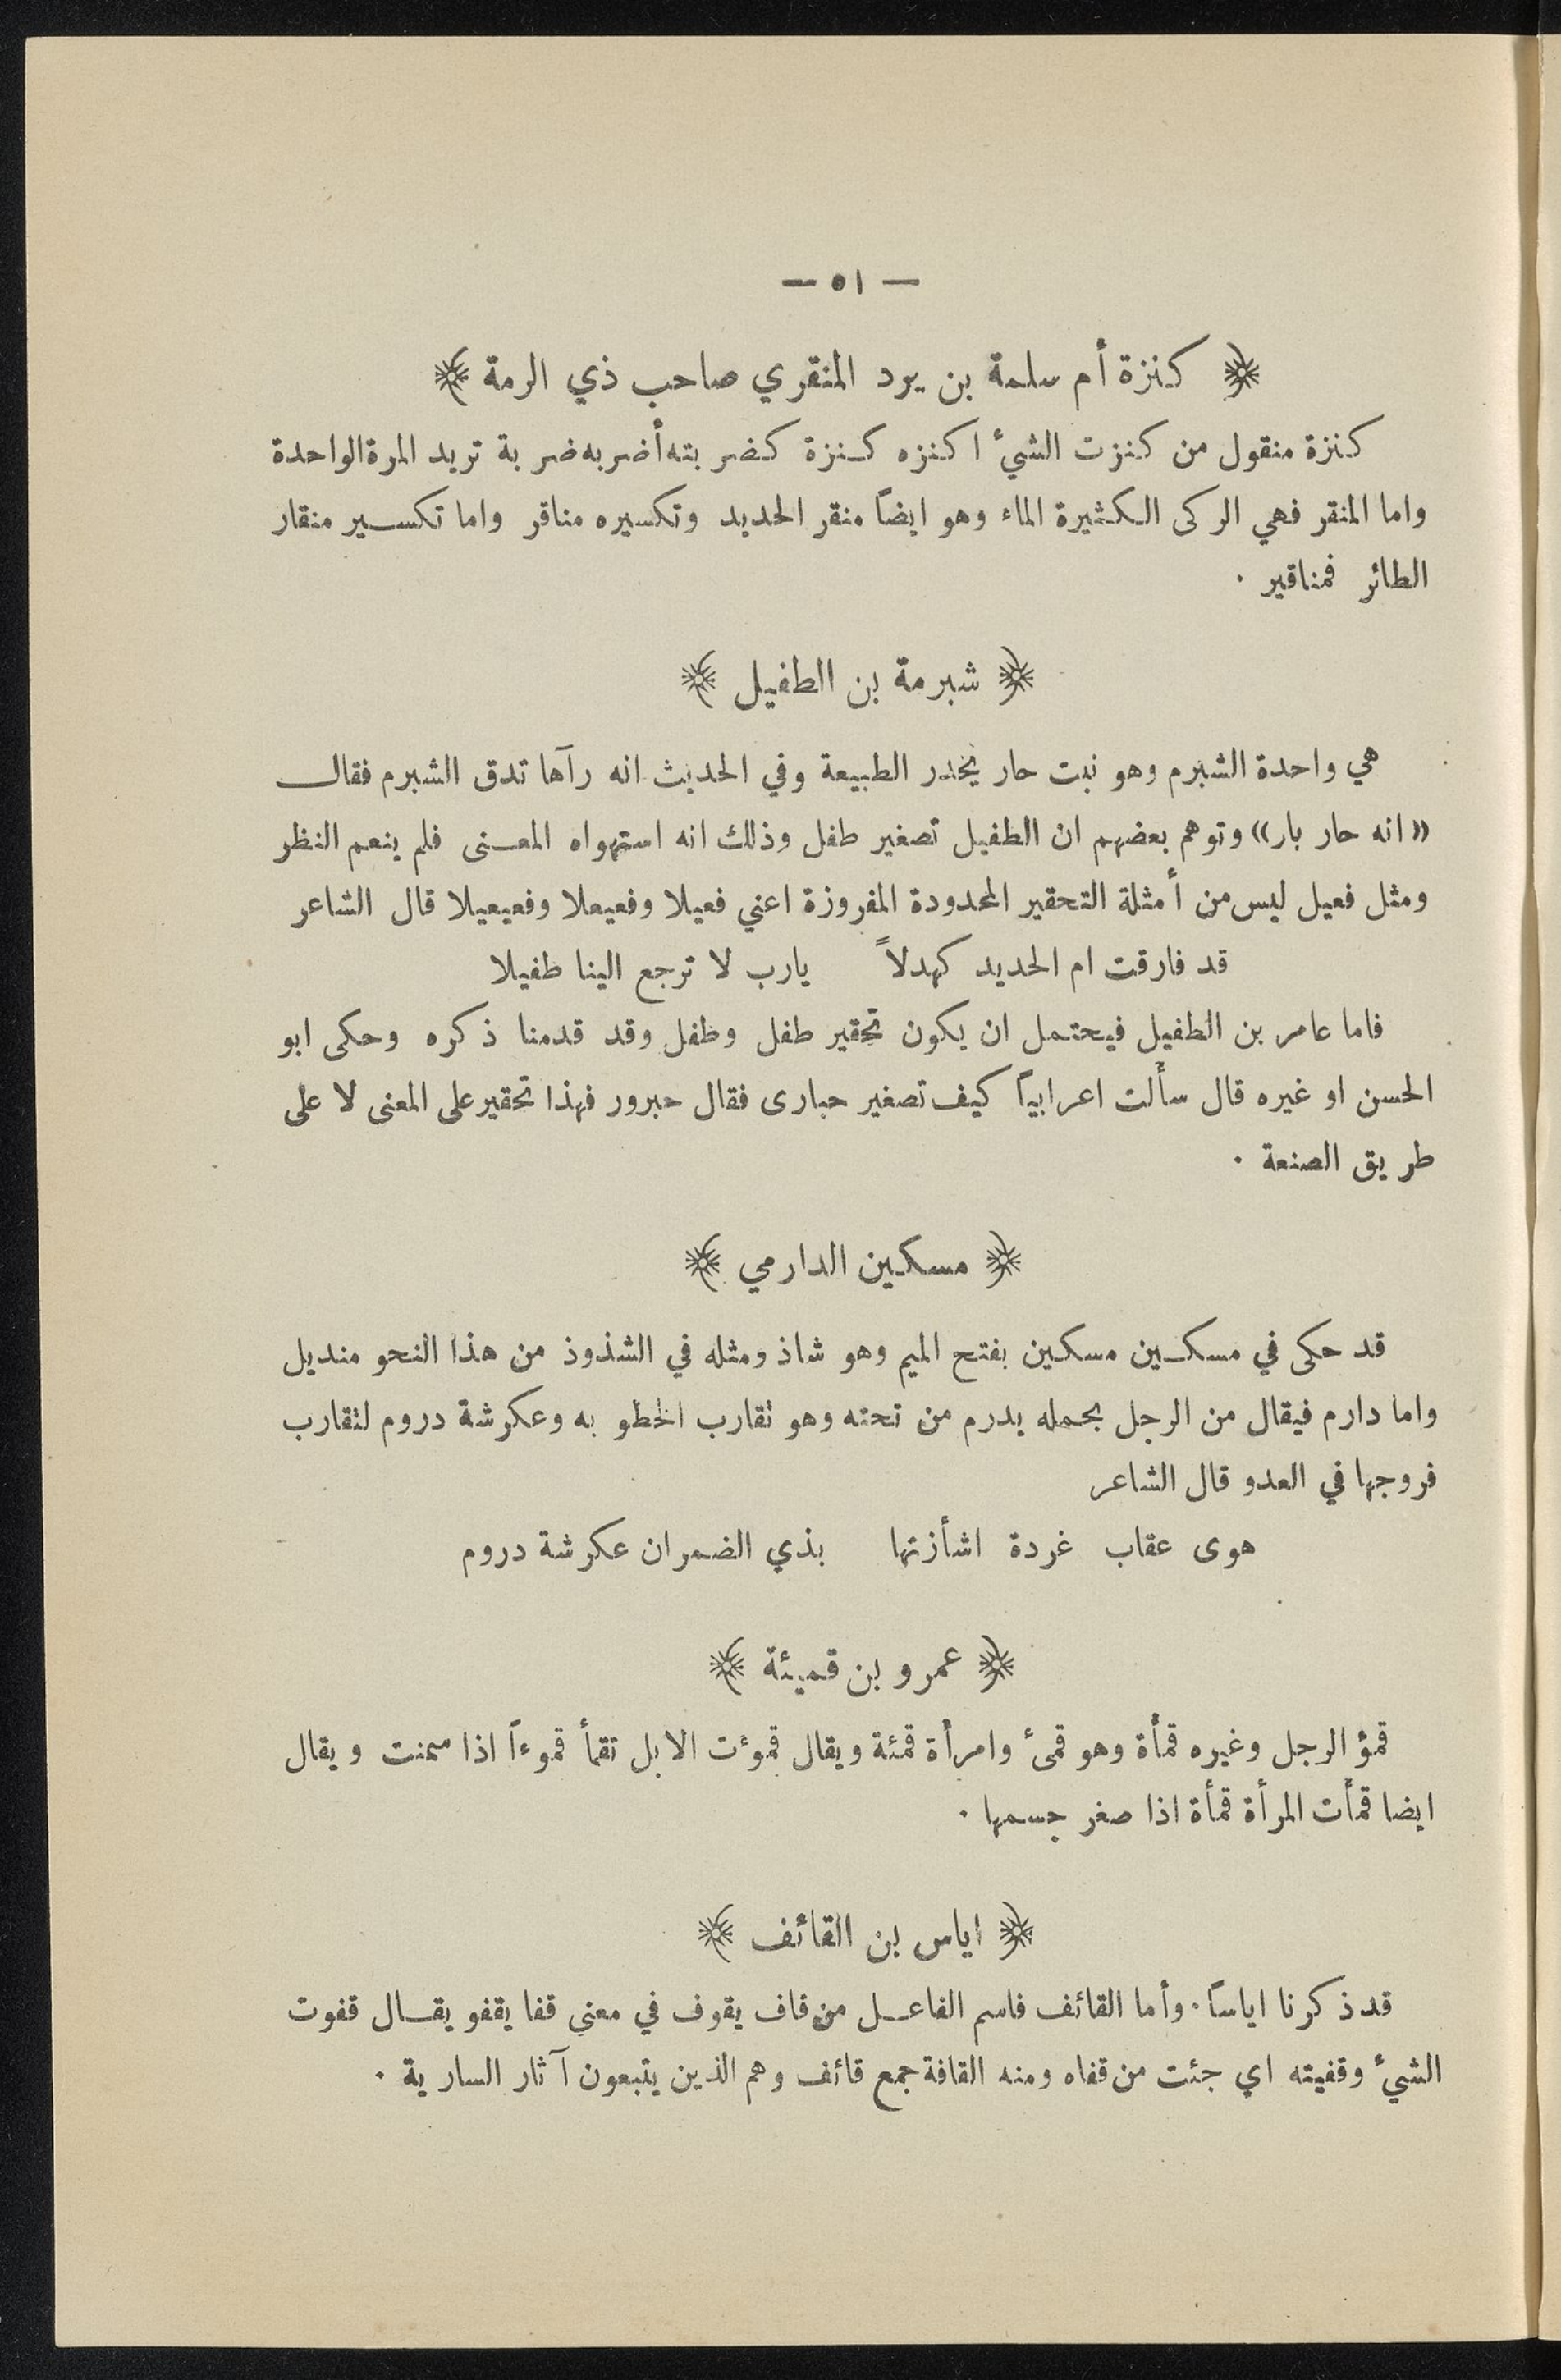 — ٥١ —
﴿ كنزة أم سلمة بن يرد المنقري صاحب ذي الرمة ﴾
كنزة منقول من كنزت الشيء اكنزه كنزة كضربته أضربه ضربة تريد المرة الواحدة
واما المنقر فهي الركى الكثيرة الماء وهو ايضاً منقر الحديد وتكسيره مناقر واما تكسير منقار
الطائر فمناقير .
﴿ شبرمة بن الطفيل ﴾
هي واحدة الشبرم وهو نبت حار يخدر الطبيعة وفي الحديث انه رآها تدق الشبرم فقال
«انه حار بار» وتوهم بعضهم ان الطفيل تصغير طفل وذلك انه استهواه المعنى فلم ينعم النظر
ومثل فعيل ليس من أمثلة التحقير المحدودة المفروزة اعني فعيلا وفعيعلا وفعيعيلا قال الشاعر
قد فارقت ام الحديد كهدلاً يارب لا ترجع الينا طفيلا
فاما عامر بن الطفيل فيحتمل ان يكون تحقير طفل وطفل وقد قدمنا ذكره وحكى ابو
الحسن او غيره قال سألت اعرابياً كيف تصغير حبارى فقال حبرور فهذا تحقير على المعنى لا على
طريق الصنعة .
﴿ مسكين الدارمي ﴾
قد حكى في مسكين مسكين بفتح الميم وهو شاذ ومثله في الشذوذ من هذا النحو منديل
واما دارم فيقال من الرجل بحمله يدرم من تحته وهو تقارب الخطو به وعكرشة دروم لتقارب
فروجها في العدو قال الشاعر
هوى عقاب غردة اشأزتها بذي الضمران عكرشة دروم
﴿ عمرو بن قميئة ﴾
قمؤ الرجل وغيره قمأة وهو قمئ وامرأة قمئة ويقال قموءت الابل تقمأ قموءاً اذا سمنت ويقال
ايضا قمأت المرأة قمأة اذا صغر جسمها .
﴿ اياس بن القائف ﴾
قد ذكرنا اياساً . وأما القائف فاسم الفاعل من قاف يقوف في معنى قفا يقفو يقال قفوت
الشيء وقفيته اي جئت من قفاه ومنه القافة جمع قائف وهم الذين يتبعون آثار السارية .